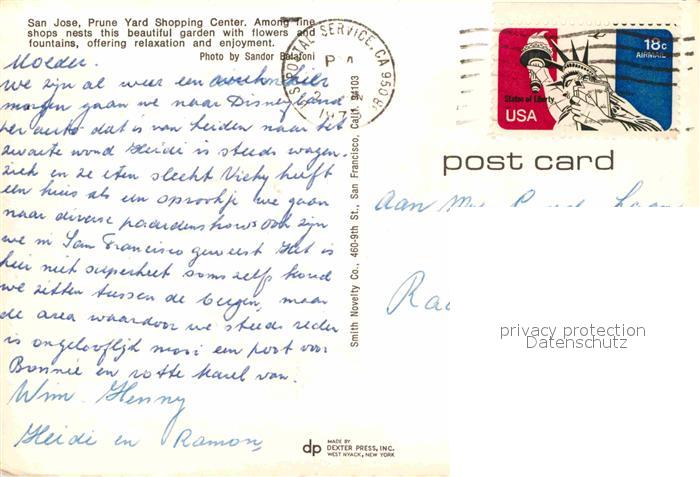 San Jose, Prune Yard Shopping Center. Among fine
shops nests this beautiful garden with flowers and
fountains, offering relaxation and enjoyment.
Photo by Sandor Balatoni
Moeder.
we zijn al weer een
morgen gaan we naar Disneyland
per auto dat is van heiden naar het
zwarte woud Heidi is steeds wagen-
ziek en ze eten slecht Vicky heeft
een huis als een sprookje we gaan
naar diverse paardenshows ook zijn
we in San Francisco geweest Het is
hier niet superheet soms zelfs koud
we zitten tussen de bergen, maar
de area waardoor we steeds reden
is ongelooflijk mooi een poot voor
Bonnie en rotte Karel van.
Wim Henny
Heidi en Ramon,
U.S. POSTAL SERVICE, CA 950
PM
197
Smith Novelty Co., 460-9th St., San Francisco, Calif. 94103
18c
AIRMAIL
Statue of Liberty
USA
post card
Aan
privacy protection
Datenschutz
dp
MADE BY
DEXTER PRESS, INC.
WEST NYACK, NEW YORK